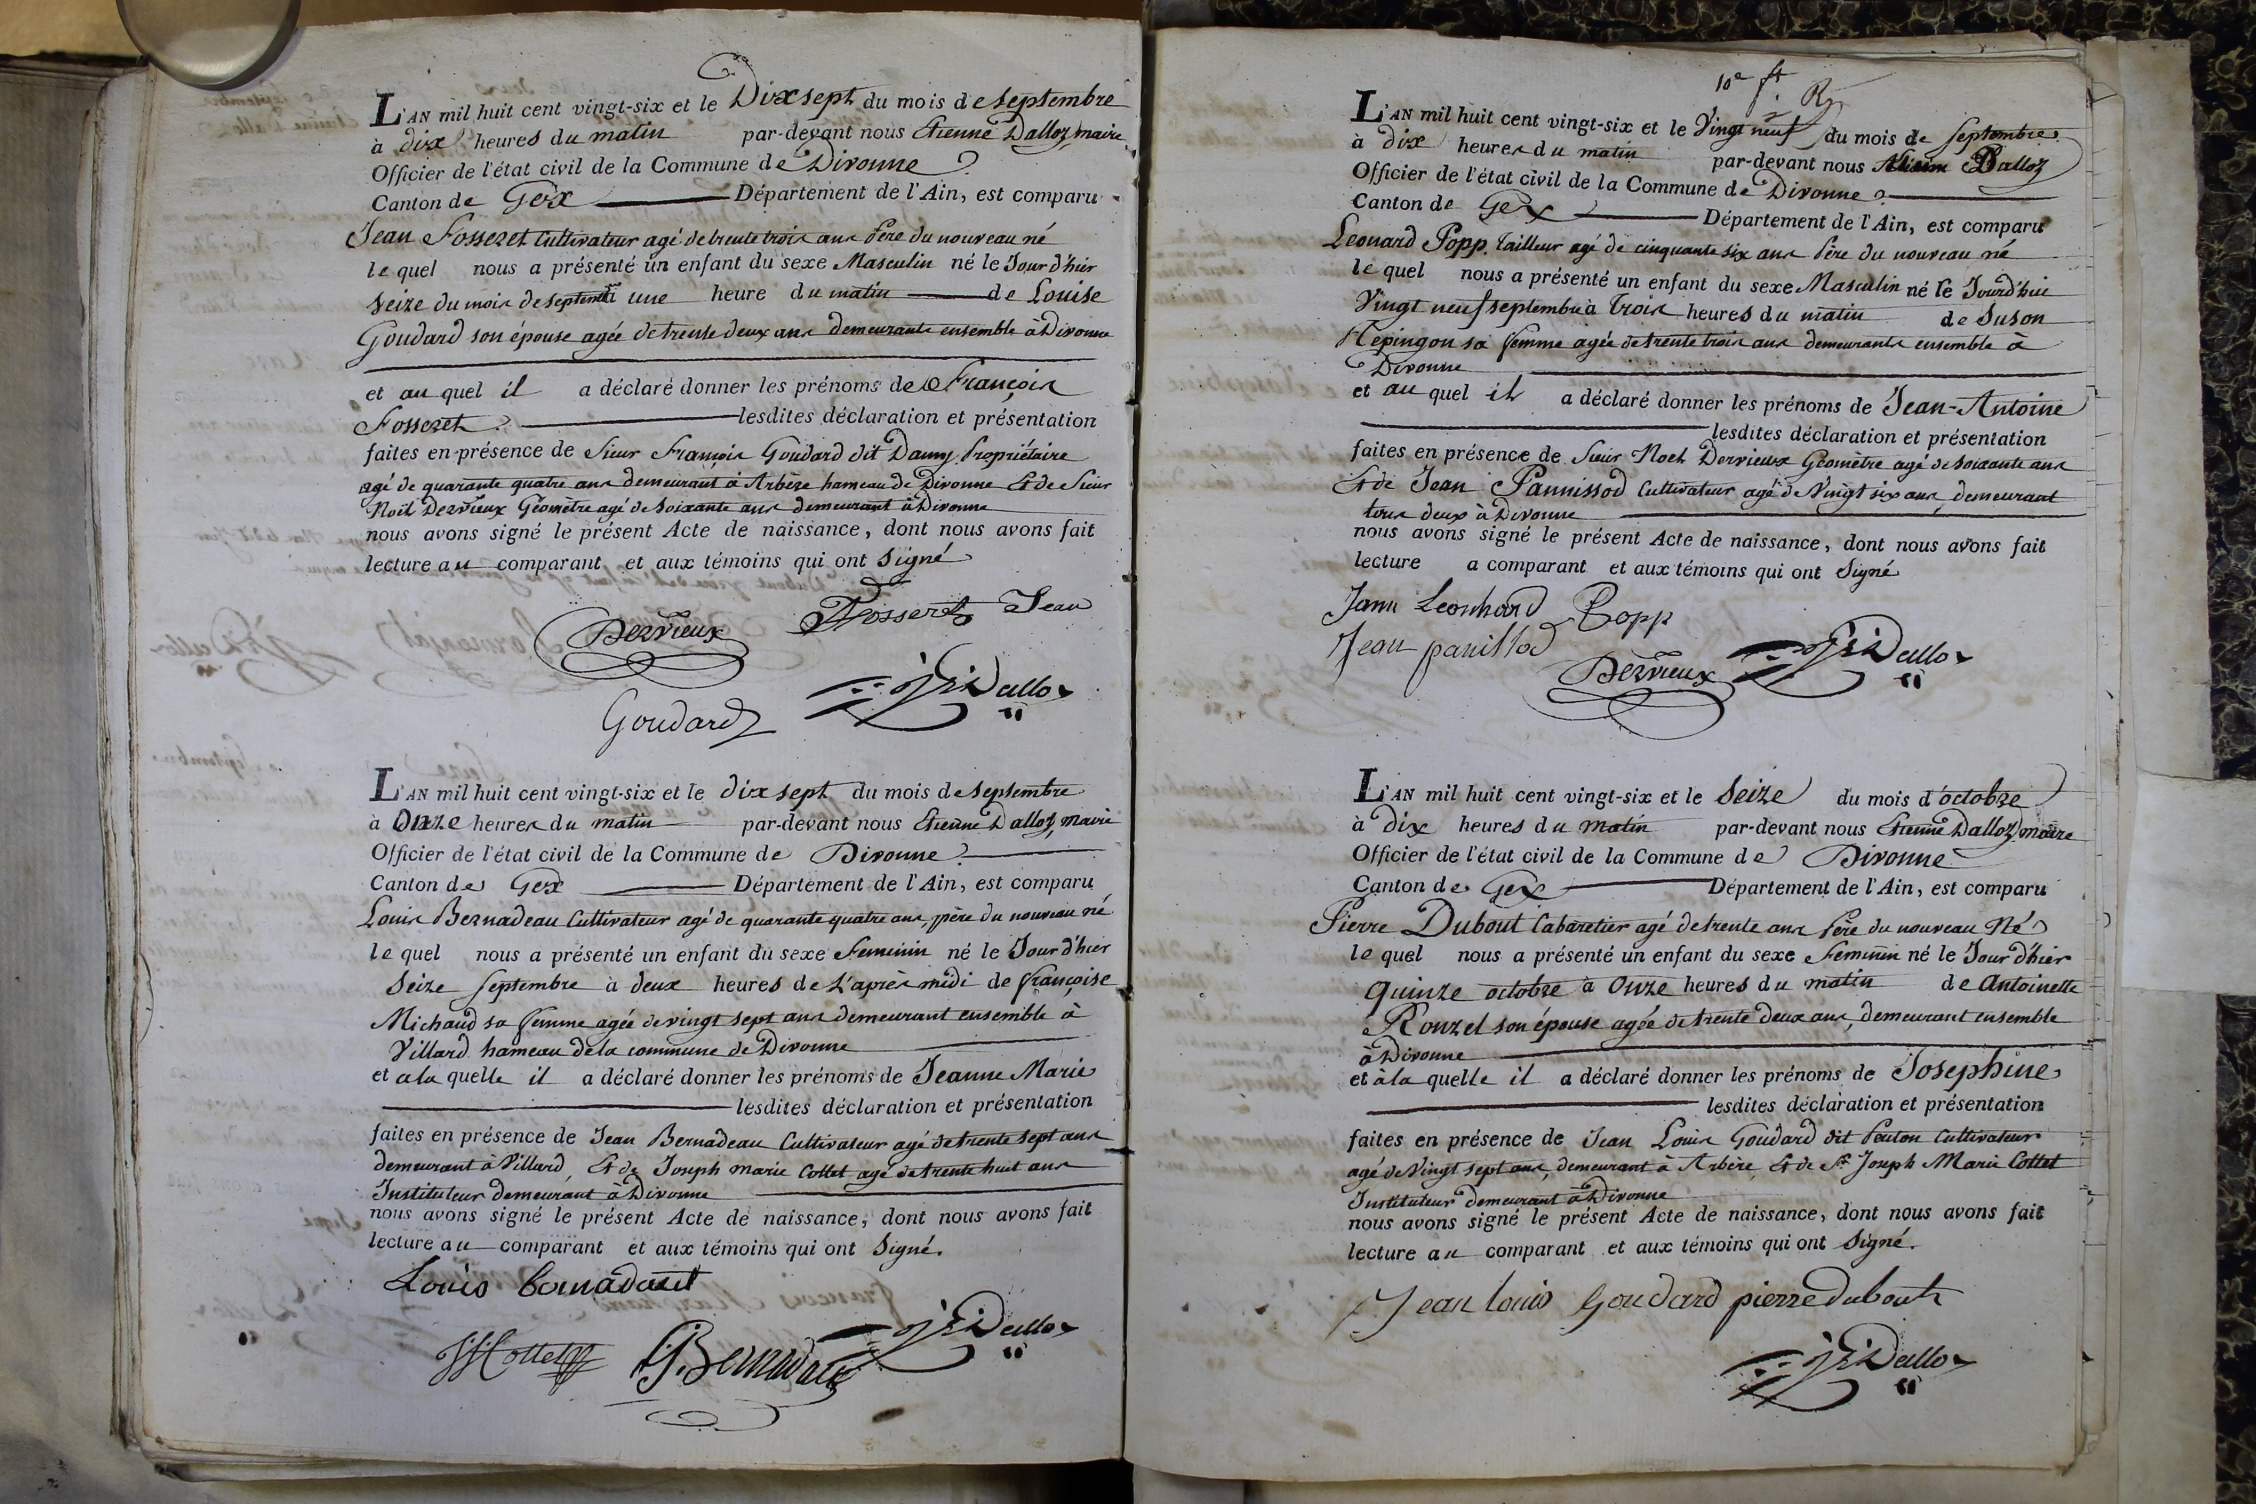 L'AN mil huit cent vingt-six et le Dix sept du mois de septembre
à dix heures du matin par-devant nous Etienne Dalloz, maire
Officier de l'état civil de la Commune de Divonne
Canton de Gex Département de l'Ain, est comparu
Jean Fosseret Cultivateur agé de trente trois ans Père du nouveau né
le quel nous a présenté un enfant du sexe Masculin né le Jour d'hier
seize du mois de septembre une heure du matin de Louise
Goudard son épouse agée de trente deux ans demeurants ensemble à Divonne
et au quel il a déclaré donner les prénoms de François
Fosseret lesdites déclaration et présentation
faites en présence de Sieur François Goudard dit Dauny Propriétaire
agé de quarante quatre ans demeurant à Arbère hameau de Divonne Et de Sieur
Noël Dervieux Géomètre agé de soixante ans demeurant à Divonne
nous avons signé le présent Acte de naissance, dont nous avons fait
lecture au comparant et aux témoins qui ont signé
Fosseret Jean
Dervieux
Dalloz
Goudard
L'AN mil huit cent vingt-six et le dix sept du mois de septembre
à Onze heures du matin par-devant nous Etienne Dalloz, maire
Officier de l'état civil de la Commune de Divonne
Canton de Gex Département de l'Ain, est comparu
Louis Bernadeau Cultivateur agé de quarante quatre ans, père du nouveau né
le quel nous a présenté un enfant du sexe Feminin né le Jour d'hier
seize septembre à deux heures de L'après midi de françoise
Michaud sa femme agée de vingt sept ans demeurant ensemble à
Villard hameau de la commune de Divonne
et a la quelle il a déclaré donner les prénoms de Jeanne Marie
lesdites déclaration et présentation
faites en présence de Jean Bernadeau Cultivateur agé de trente sept ans
demeurant à Villard, Et de Joseph marie Cottet agé de trente huit ans
Instituteur demeurant à Divonne
nous avons signé le présent Acte de naissance, dont nous avons fait
lecture au comparant et aux témoins qui ont Signé.
Louis
Dalloz
Cottet
10e ft
L'AN mil huit cent vingt-six et le Vingt neuf du mois de Septembre
à dix heures du matin par-devant nous Dalloz
Officier de l'état civil de la Commune de Divonne
Canton de Gex Département de l'Ain, est comparu
Leonard Popp, Tailleur agé de cinquante six ans Père du nouveau né
le quel nous a présenté un enfant du sexe Masculin né le Jourd'hui
Vingt neuf septembre à trois heures du matin de Suson
Hepingon sa femme agée de trente trois ans demeurants ensemble à
Divonne
et au quel il a déclaré donner les prénoms de Jean-Antoine
lesdites déclaration et présentation
faites en présence de Sieur Noel Dervieux Géomètre agé de soixante ans
Et de Jean Pannissod Cultivateur agé de Vingt six ans, demeurant
tous deux à Divonne
nous avons signé le présent Acte de naissance, dont nous avons fait
lecture a comparant et aux témoins qui ont Signé
Leonhard Popp
Jean panissod
Dalloz
Dervieux
L'AN mil huit cent vingt-six et le Seize du mois d'octobre
à Dix heures du Matin par-devant nous Etienne Dalloz, maire
Officier de l'état civil de la Commune de Divonne
Canton de Gex Département de l'Ain, est comparu
Pierre Dubout Cabaretier agé de trente ans Père du nouveau Né
le quel nous a présenté un enfant du sexe Feminin né le Jour d'hier
quinze octobre à Onze heures du matin de Antoinette
Rouzel son épouse agée de trente deux ans, demeurant ensemble
à Divonne
et à la quelle il a déclaré donner les prénoms de Josephine
lesdites déclaration et présentation
faites en présence de Jean Louis Goudard dit Peuton Cultivateur
agé de Vingt sept ans, demeurant à Arbère, Et de Sr Joseph Marie Cottet
Instituteur demeurant à Divonne
nous avons signé le présent Acte de naissance, dont nous avons fait
lecture au comparant et aux témoins qui ont Signé.
Jean louis Goudard pierre dubout
Dalloz